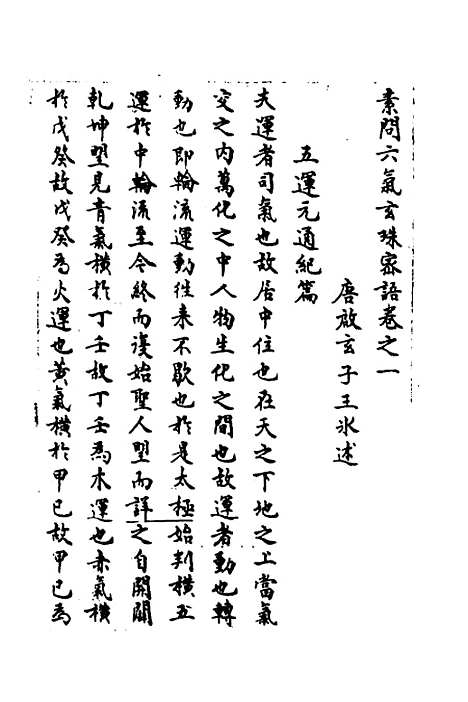 素問六氣玄珠宻語卷之一
唐啟玄子王氷述
五運元通紀篇
夫運者司氣也故居中位也在天之下地之上當氣
交之内萬化之中人物生化之間也故運者動也轉
動也即輪流運動徃来不歇也於是太極始判橫五
運於中輪流至今終而復始聖人望而詳之自開闢
乾坤望見青氣橫於丁壬故丁壬為木運也赤氣橫
於戊癸故戊癸為火運也黄氣橫於甲己故甲己為